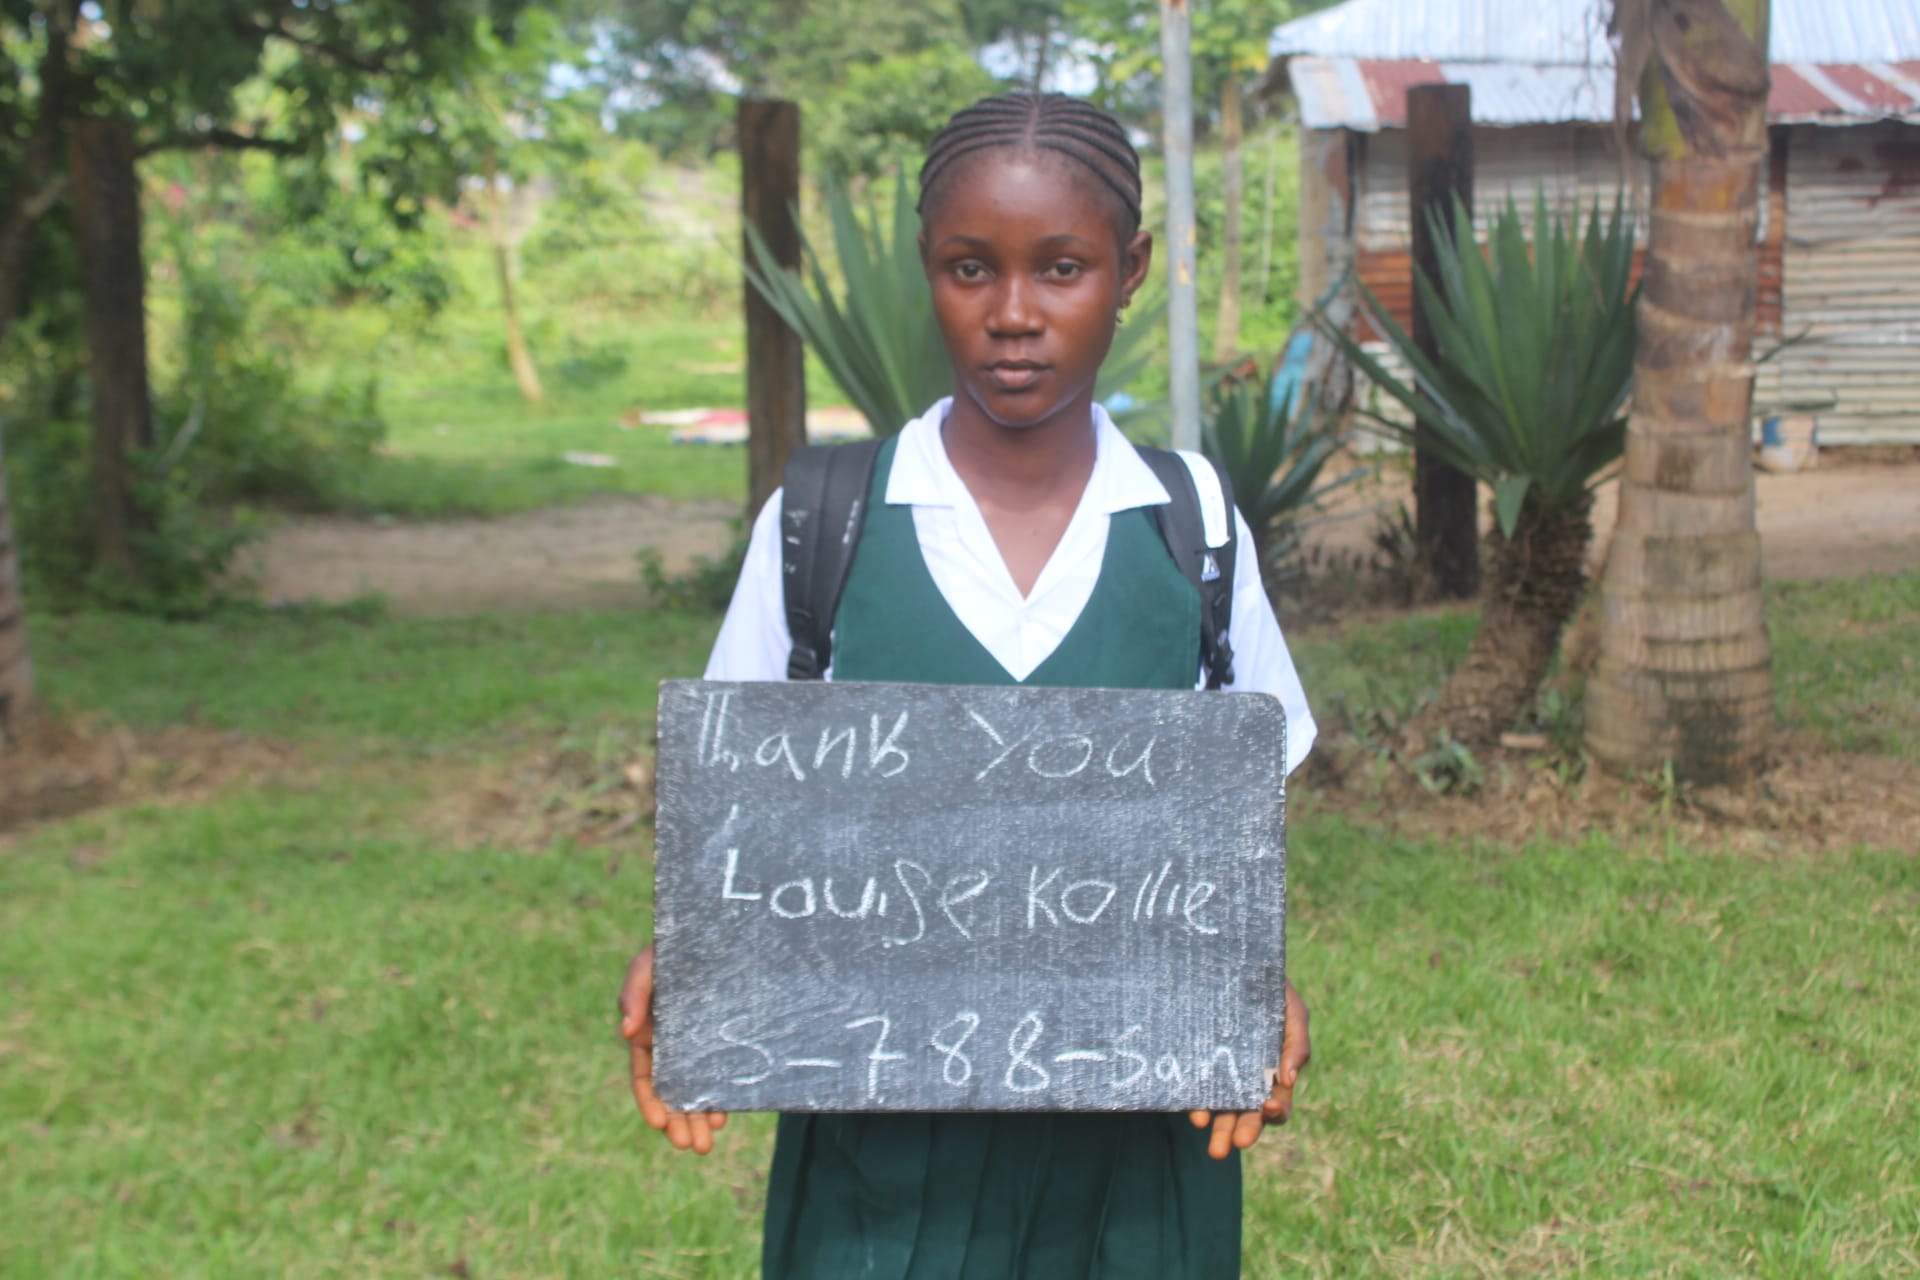 Thank You
Louise Kollie
S-788-San